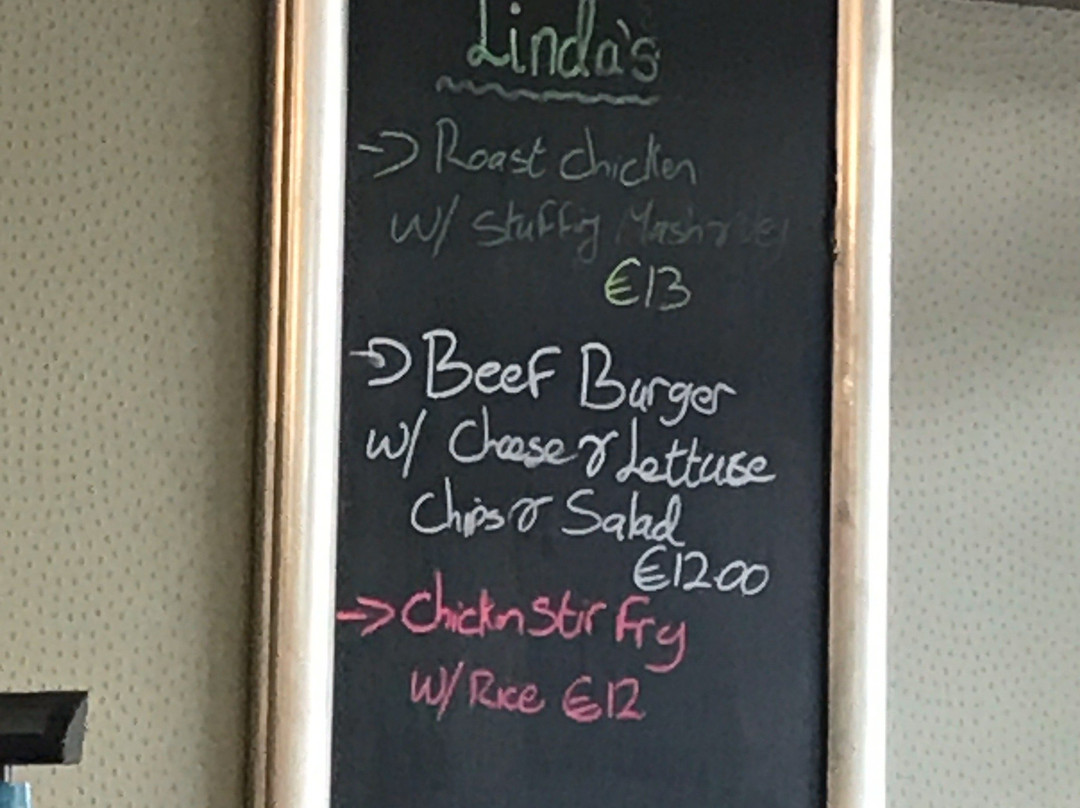 Linda's
→ Roast chicken
w/ stuffing Mash & Veg
€13
→ Beef Burger
w/ Cheese & Lettuse
Chips & Salad
€12.00
→ Chicken Stir Fry
w/ Rice €12